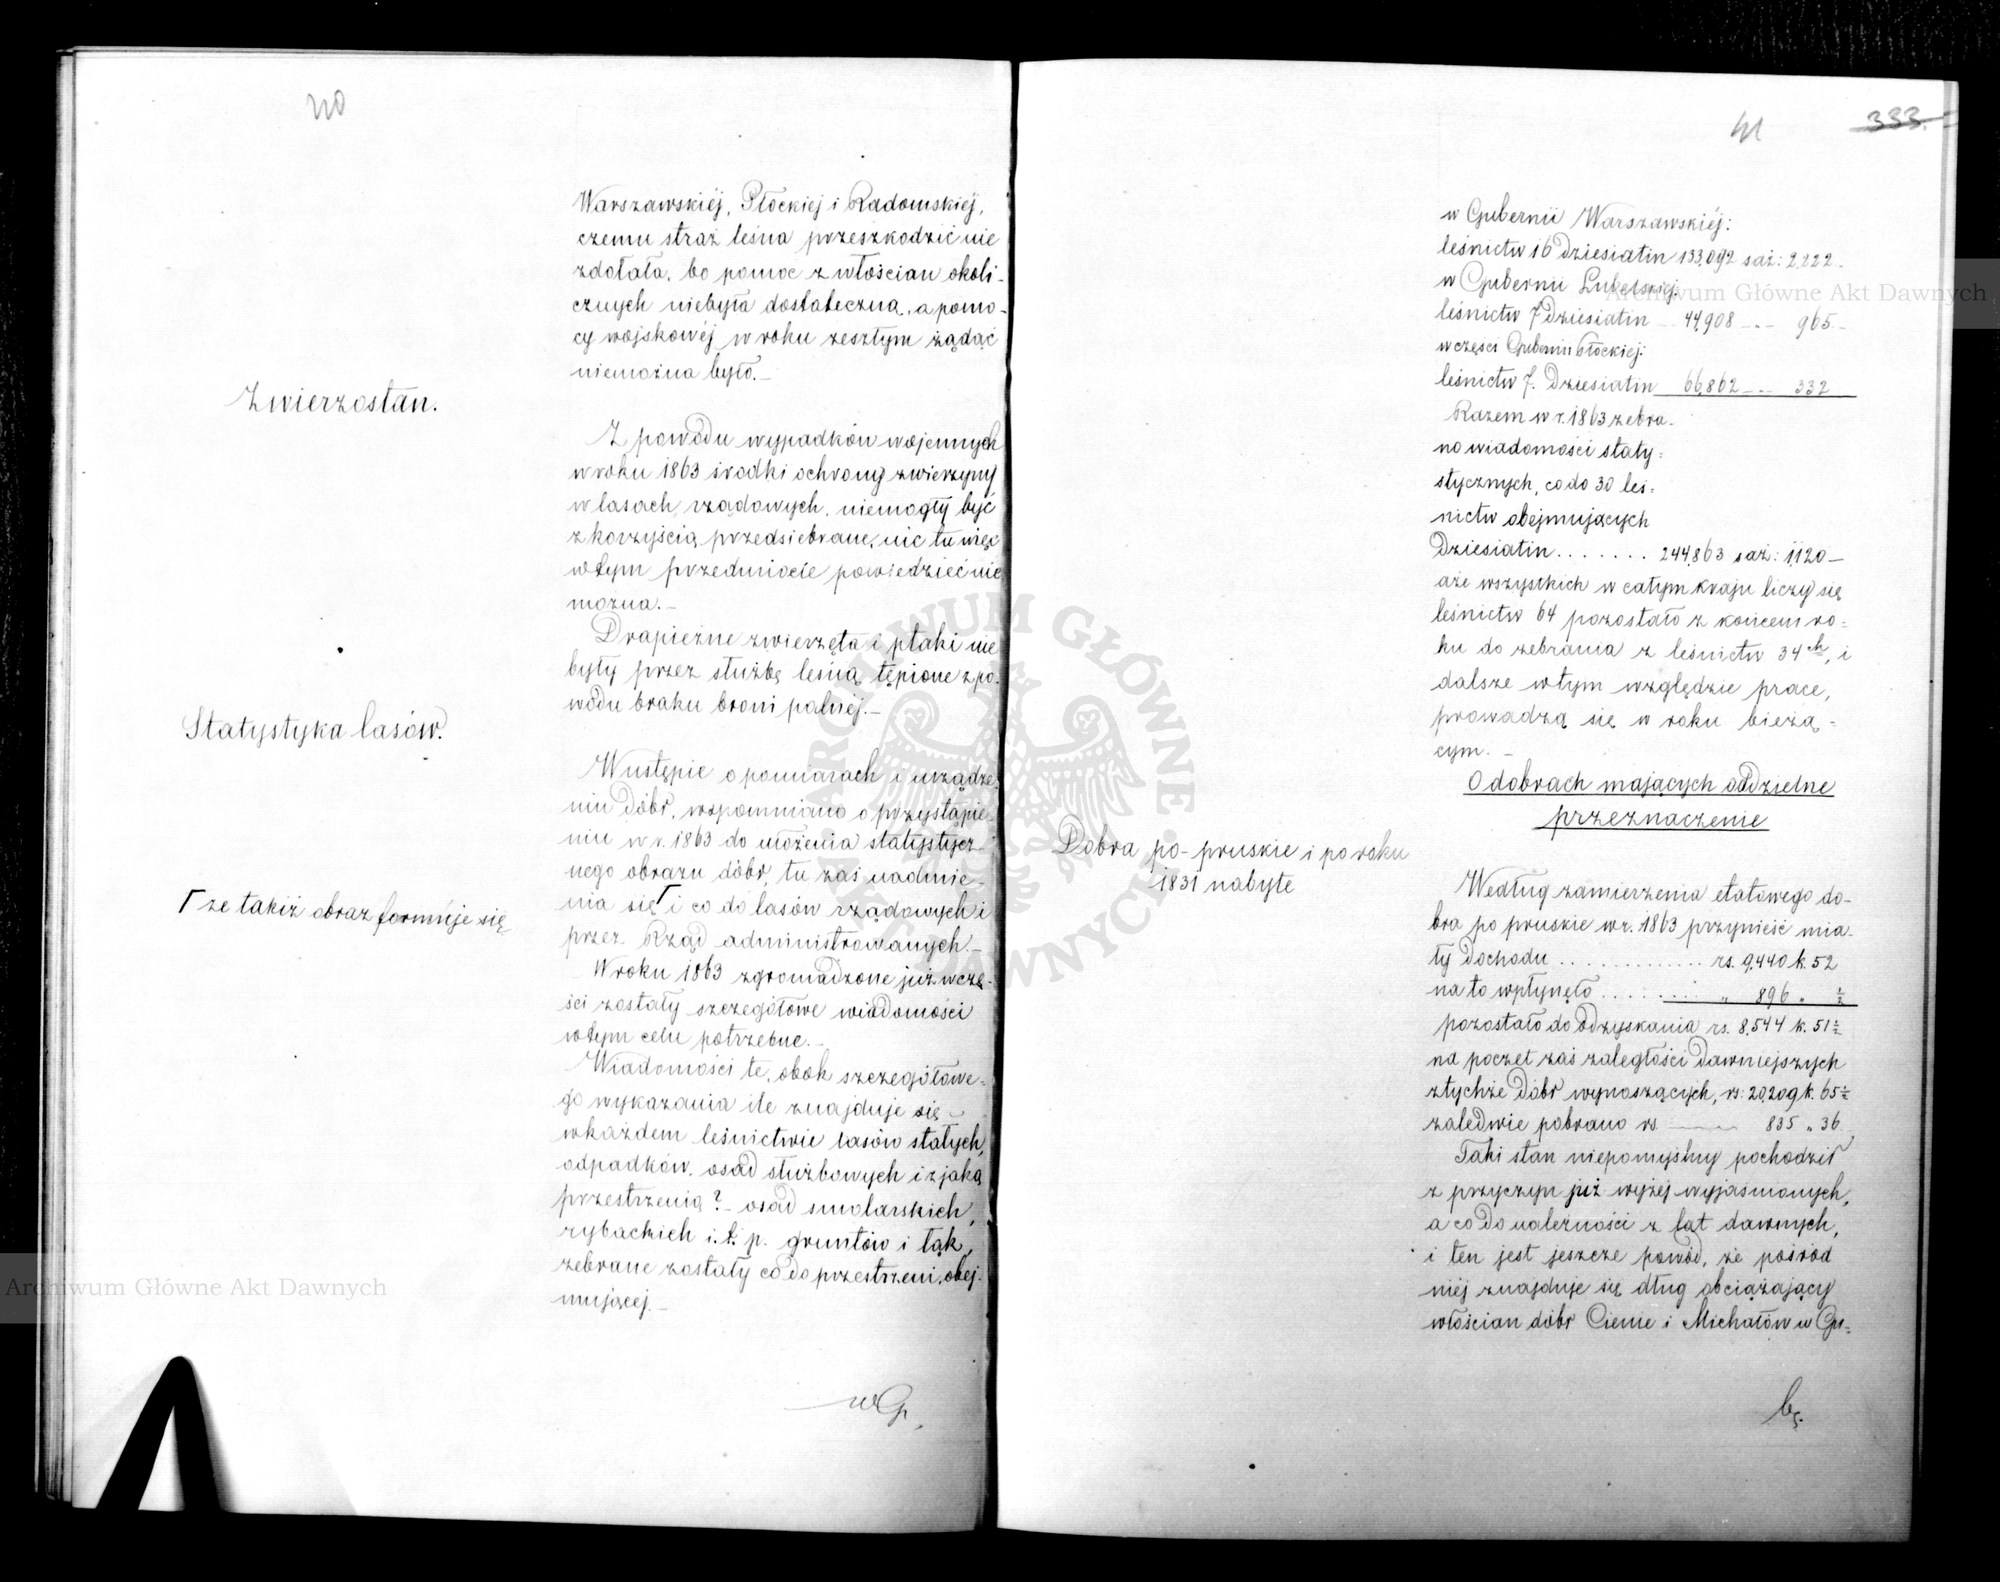 40
Warszawskiéj, Płockiej i Radomskiéj,
czemu straż leśna przeszkodzić nie
zdołała, bo pomoc z włościan okoli-
cznych niebyła dostateczną, a pomo-
cy wojskowéj w roku zeszłym żądać
niemożna było.—
Zwierzostan.
Z powodu wypadków wojennych
w roku 1863 środki ochrony zwierzyny
w lasach rządowych, niemogły być
z korzyścią przedsiebrane, nic tu więc
w tym przedmiocie powiedzieć nie
można.—
Drapieżne zwierzęta i ptaki nie
były przez służbę leśną tępione z po-
wodu braku broni palnéj.—
Statystyka lasów.
W ustępie o pomiarach i urządze-
niu dóbr, wspomniano o przystąpie-
niu w r. 1863 do ułożenia statystycz-
nego obrazu dóbr, tu zaś nadmie-
nia się Γ i co do lasów rządowych i
Γ że takiż obraz formuje się
przez Rząd administrowanych.—
W roku 1863 zgromadzone już w czę-
ści zostały szczegółowe wiadomości
w tym celu potrzebne.—
Wiadomości te, obok szczegółowe-
go wykazania ile znajduje się
w każdem leśnictwie lasów stałych,
odpadków, osad służbowych i z jaką
przestrzenią? — osad smolarskich,
rybackich i. t. p. gruntów i łąk,
zebrane zostały co do przestrzeni, obej-
mującej.—
w Gu
41
333.
w Gubernii Warszawskiéj:
leśnictw 16 Dziesiatin 133,092 saż: 2,222.
w Gubernii Lubelskiej:
leśnictw 7 Dziesiatin 44,908 —„— 965.
w części Gubernii Płockiej:
leśnictw 7. Dziesiatin 66,862 —„— 332
Razem w r. 1863 zebra-
no wiadomości staty-
stycznych, co do 30 leś-
nictw obejmujących
Dziesiatin ....... 244,863 saż: 1,120 —
a że wszystkich w całym kraju liczy się
leśnictw 64 pozostało z końcem ro-
ku do zebrania z leśnictw 34ch, i
dalsze w tym względzie prace,
prowadzą się w roku bieżą-
cym.—
O dobrach mających oddzielne
przeznaczenie
Dobra po-pruskie i po roku
1831 nabyte
Według zamierzenia etatowego do-
bra po pruskie w r. 1863 przynieść mia-
ły dochodu ............. rs. 9,440 k. 52
na to wpłynęło ......... „ 896 „ ½
pozostało do odzyskania rs. 8,544 k. 51½
na poczet zaś zaległości dawniejszych
z tychże Dóbr wynoszących, rs: 20,209 k. 65½
zaledwie pobrano rs —— 835 „ 36
Taki stan niepomyślny pochodził
z przyczyn już wyżej wyjaśnionych,
a co do należności z lat dawnych,
i ten jest jeszcze powód, że pośród
niéj znajduje się dług obciążający
włościan dóbr Cienie i Michałów w Gu-
b.
Archiwum Główne Akt Dawnych
Archiwum Główne Akt Dawnych
ARCHIWUM GŁÓWNE AKT DAWNYCH